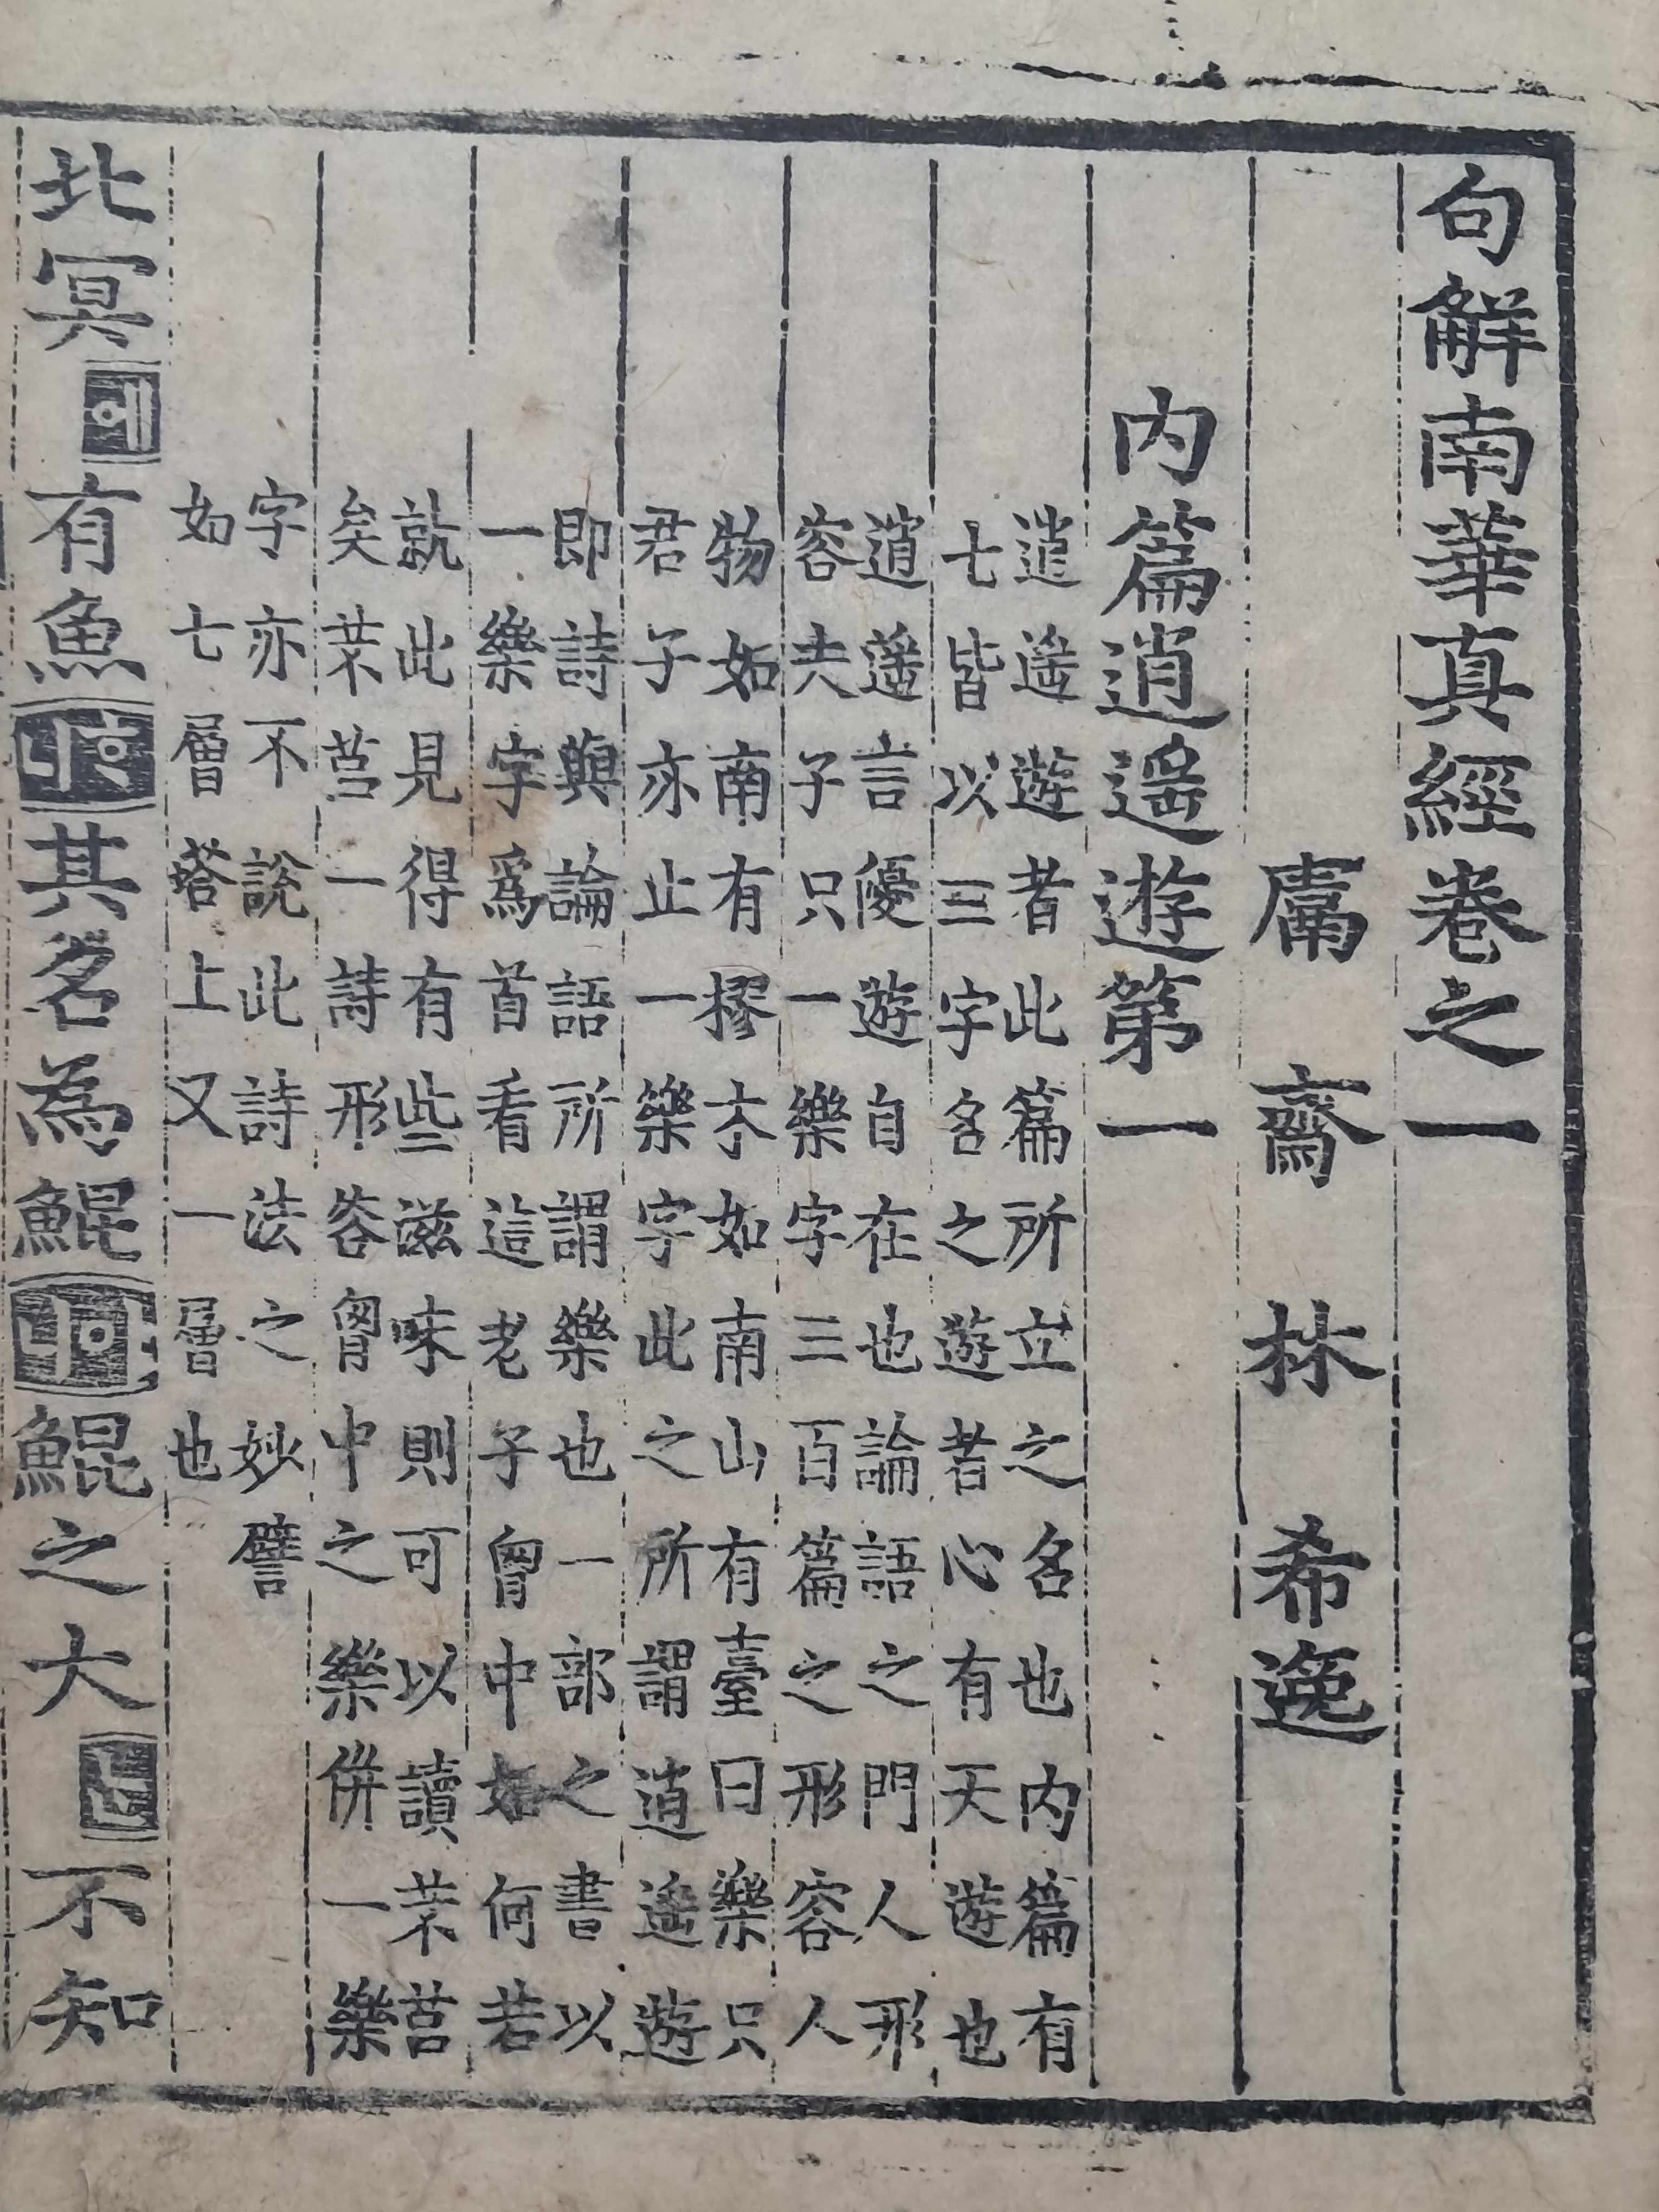 句解南華真經卷之一
鬳齋林希逸
內篇逍遙遊第一
逍遙遊者此篇所立之名也內篇有
七皆以三字名之遊者心有天遊也
逍遙言優遊自在也論語之門人形
容夫子只一樂字三百篇之形容人
物如南有樛木如南山有臺曰樂只
君子亦止一樂字此之所謂逍遙遊
即詩與論語所謂樂也一部之書以
一樂字爲首看這老子胷中如何若
就此見得有些滋味則可以讀芣苢
矣芣苢一詩形容胷中之樂併一樂
字亦不說此詩法之妙譬
如七層塔上又一層也
北冥有魚其名為鯤鯤之大不知